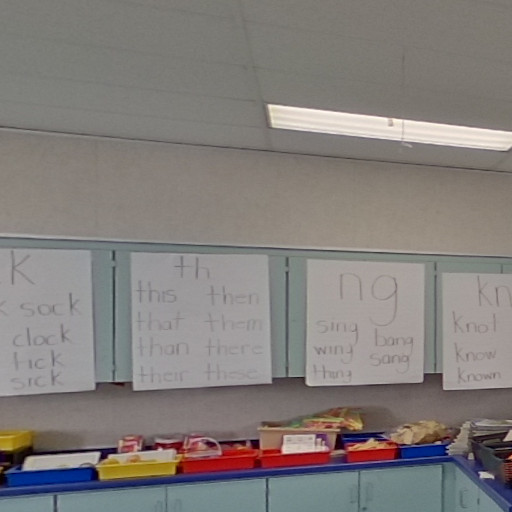 k
sock
clock
tick
sick
th
this then
that them
than there
their these
ng
sing bang
wing sang
thing
kn
knot
know
known